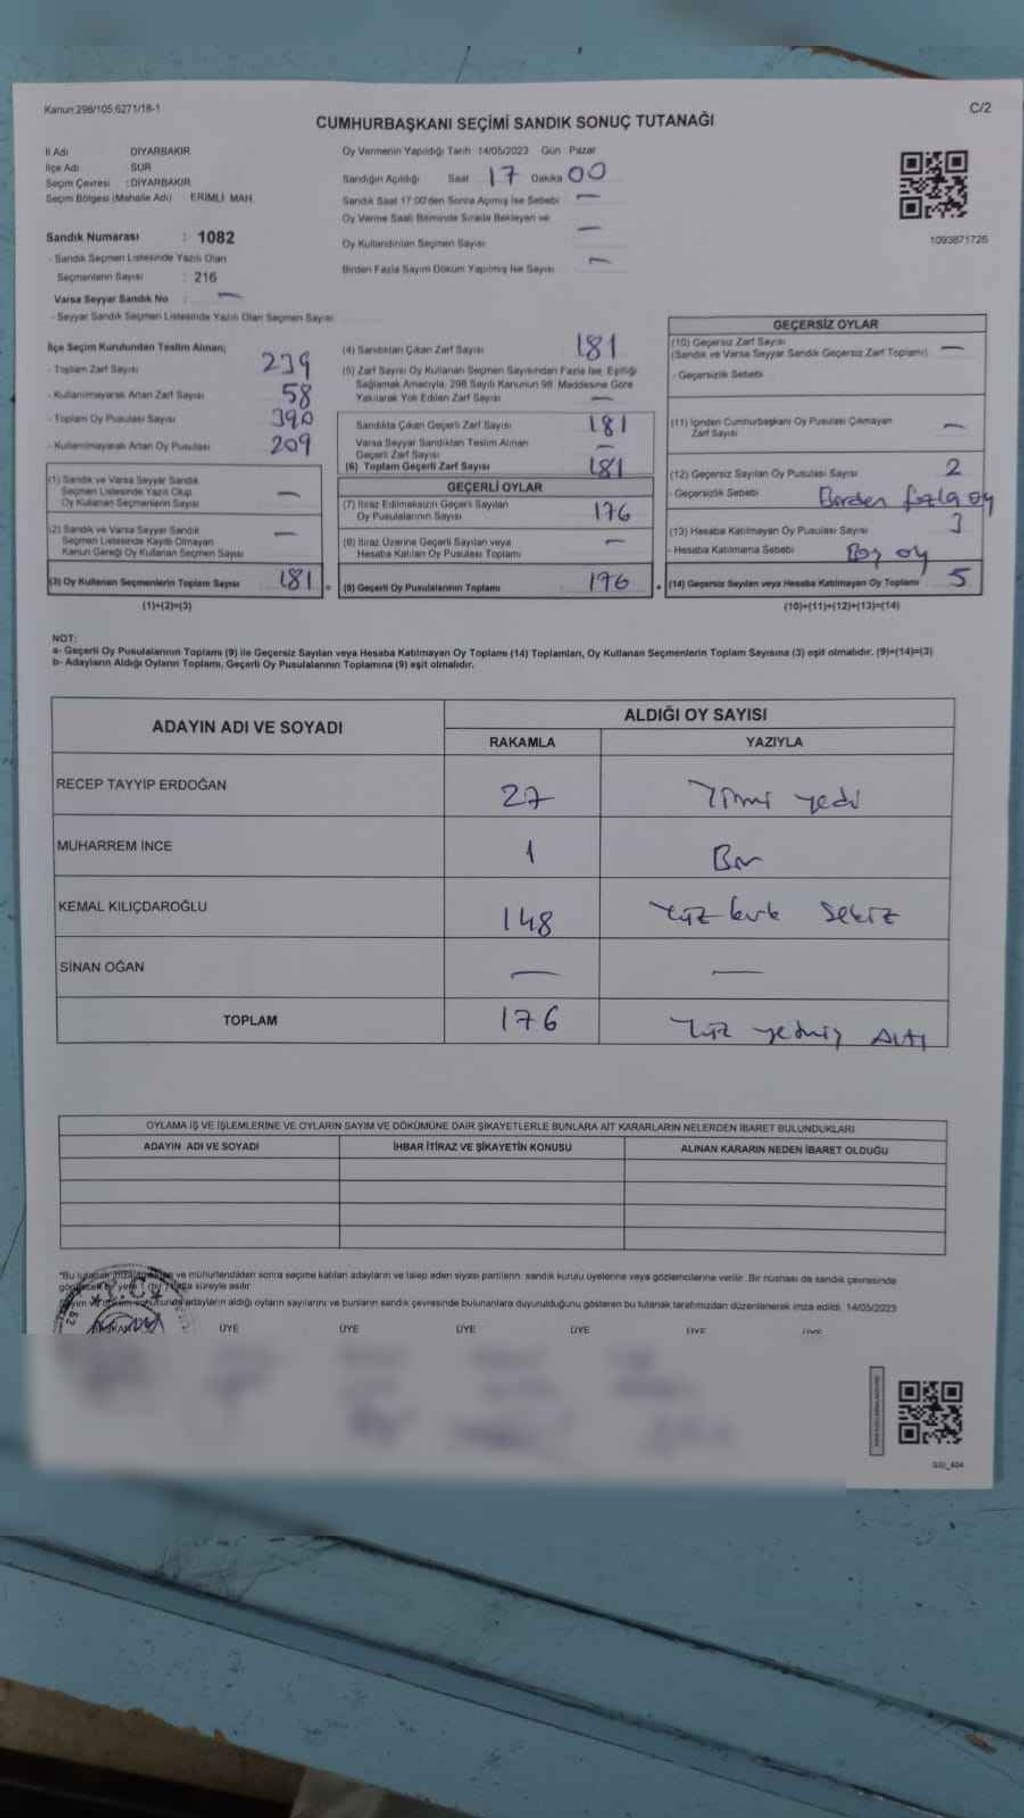 Kanun:298/105,6271/18-1
C/2
CUMHURBAŞKANI SEÇİMİ SANDIK SONUÇ TUTANAĞI
İl Adı : DİYARBAKIR
İlçe Adı : SUR
Seçim Çevresi : DİYARBAKIR
Seçim Bölgesi (Mahalle Adı) ERİMLİ MAH.
Sandık Numarası : 1082
- Sandık Seçmen Listesinde Yazılı Olan
Seçmenlerin Sayısı : 216
Varsa Seyyar Sandık No : —
- Seyyar Sandık Seçmen Listesinde Yazılı Olan Seçmen Sayısı
Oy Vermenin Yapıldığı Tarih :14/05/2023 Gün : Pazar
Sandığın Açıldığı Saat 17 Dakika 00
Sandık Saat 17:00'den Sonra Açılmış İse Sebebi —
Oy Verme Saati Bitiminde Sırada Bekleyen ve
Oy Kullandırılan Seçmen Sayısı —
Birden Fazla Sayım Döküm Yapılmış İse Sayısı —
1093871726
İlçe Seçim Kurulundan Teslim Alınan;
- Toplam Zarf Sayısı 239
- Kullanılmayarak Artan Zarf Sayısı 58
- Toplam Oy Pusulası Sayısı 390
- Kullanılmayarak Artan Oy Pusulası 209
(1) Sandık ve Varsa Seyyar Sandık
Seçmen Listesinde Yazılı Olup
Oy Kullanan Seçmenlerin Sayısı —
(2) Sandık ve Varsa Seyyar Sandık
Seçmen Listesinde Kayıtlı Olmayan
Kanun Gereği Oy Kullanan Seçmen Sayısı —
(3) Oy Kullanan Seçmenlerin Toplam Sayısı 181
(1)+(2)=(3)
(4) Sandıktan Çıkan Zarf Sayısı 181
(5) Zarf Sayısı Oy Kullanan Seçmen Sayısından Fazla İse, Eşitliği
Sağlamak Amacıyla, 298 Sayılı Kanunun 98. Maddesine Göre
Yakılarak Yok Edilen Zarf Sayısı —
Sandıkta Çıkan Geçerli Zarf Sayısı 181
Varsa Seyyar Sandıktan Teslim Alınan
Geçerli Zarf Sayısı —
(6) Toplam Geçerli Zarf Sayısı 181
GEÇERLİ OYLAR
(7) İtiraz Edilmeksizin Geçerli Sayılan
Oy Pusulalarının Sayısı 176
(8) İtiraz Üzerine Geçerli Sayılan veya
Hesaba Katılan Oy Pusulası Toplamı —
Geçerli Oy Pusulalarının Toplamı 176
GEÇERSİZ OYLAR
(10) Geçersiz Zarf Sayısı
(Sandık ve Varsa Seyyar Sandık Geçersiz Zarf Toplamı) —
- Geçersizlik Sebebi
(11) İçinden Cumhurbaşkanı Oy Pusulası Çıkmayan
Zarf Sayısı —
(12) Geçersiz Sayılan Oy Pusulası Sayısı 2
- Geçersizlik Sebebi Birden fazla oy
(13) Hesaba Katılmayan Oy Pusulası Sayısı 3
- Hesaba Katılmama Sebebi Boş oy
(14) Geçersiz Sayılan veya Hesaba Katılmayan Oy Toplamı 5
(10)+(11)+(12)+(13)=(14)
NOT:
a- Geçerli Oy Pusulalarının Toplamı (9) ile Geçersiz Sayılan veya Hesaba Katılmayan Oy Toplamı (14) Toplamları, Oy Kullanan Seçmenlerin Toplam Sayısına (3) eşit olmalıdır. (9)+(14)=(3)
b- Adayların Aldığı Oyların Toplamı, Geçerli Oy Pusulalarının Toplamına (9) eşit olmalıdır.
ADAYIN ADI VE SOYADI
ALDIĞI OY SAYISI
RAKAMLA YAZIYLA
RECEP TAYYİP ERDOĞAN 27 Yirmi yedi
MUHARREM İNCE 1 Bir
KEMAL KILIÇDAROĞLU 148 Yüz kırk Sekiz
SİNAN OĞAN — —
TOPLAM 176 Yüz yetmiş Altı
OYLAMA İŞ VE İŞLEMLERİNE VE OYLARIN SAYIM VE DÖKÜMÜNE DAİR ŞİKAYETLERLE BUNLARA AİT KARARLARIN NELERDEN İBARET BULUNDUKLARI
ADAYIN ADI VE SOYADI İHBAR İTİRAZ VE ŞİKAYETİN KONUSU ALINAN KARARIN NEDEN İBARET OLDUĞU
ve mühürlendikten sonra seçime katılan adayların ve talep eden siyasi partilerin; sandık kurulu üyelerine veya gözlemcilerine verilir. Bir nüshası da sandık çevresinde
süreyle asılır.
adayların aldığı oyların sayılarını ve bunların sandık çevresinde bulunanlara duyurulduğunu gösteren bu tutanak tarafımızdan düzenlenerek imza edildi. 14/05/2023
T.C.
ÜYE ÜYE ÜYE ÜYE ÜYE